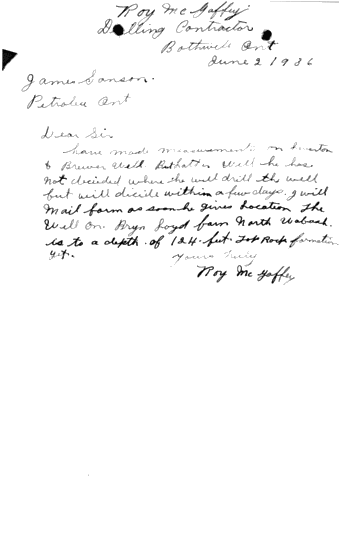 Roy Mc Gaffey
Drilling Contractor
Bothwell Ont
June 2 1936
James Sanson.
Petrolia Ont
Dear Sir
have made measurements on
& Brewer Well Well he has
not decided where he will drill the well
but will dicide within a few days. I will
mail form as soon he gives Location The
Well On. Bryn Loyd farm North Wabash.
is to a depth. of 124 feet. Top Rock formation
yet.
Yours Truly
Roy Mc Gaffey